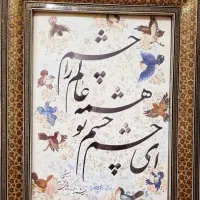 ای چشم چشم تو
همه
عالم را
چشم